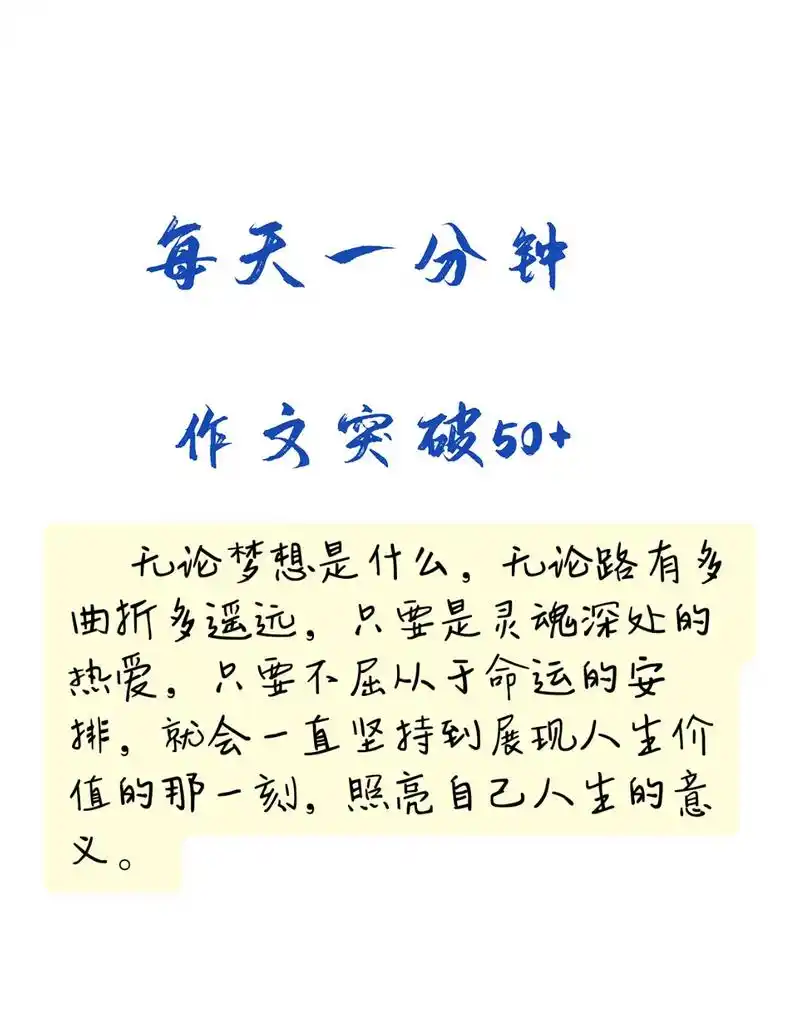 每天一分钟
作文突破50+
无论梦想是什么，无论路有多
曲折多遥远，只要是灵魂深处的
热爱，只要不屈从于命运的安
排，就会一直坚持到展现人生价
值的那一刻，照亮自己人生的意
义。